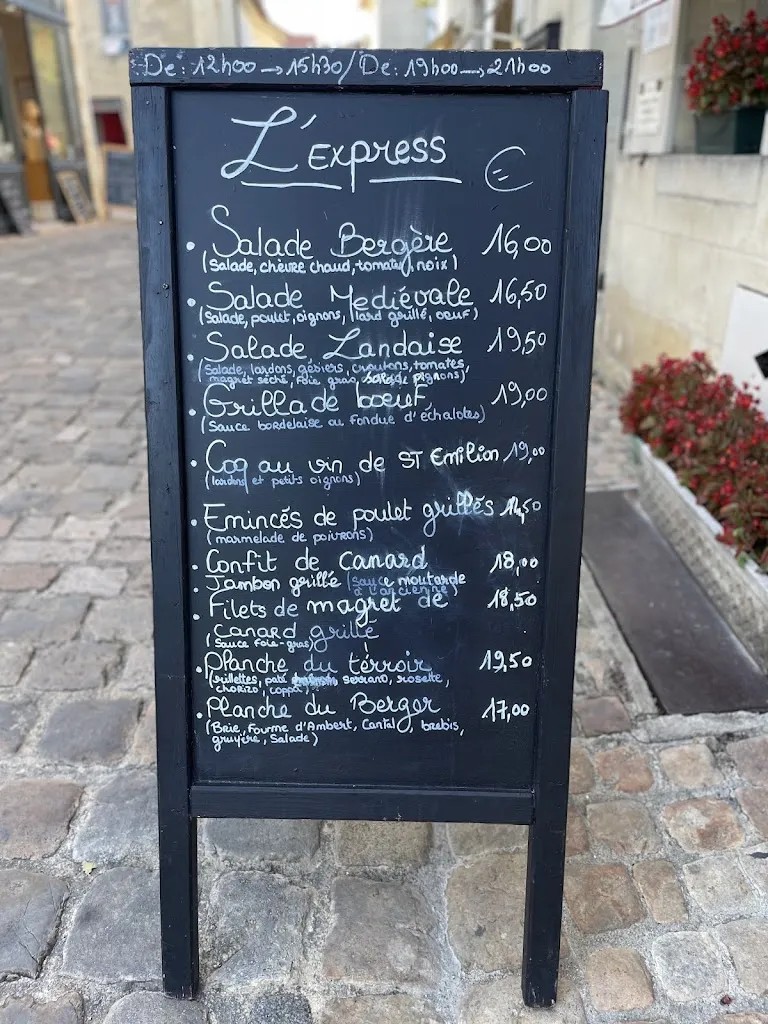 De: 12h00 → 15h30 / De: 19h00 → 21h00
L'Express €
• Salade Bergère 16,00
(Salade, chèvre chaud, tomate, noix)
• Salade Mediévale 16,50
(Salade, poulet, oignons, lard grillé, oeuf)
• Salade Landaise 19,50
(Salade, lardons, gésiers, croutons, tomates,
magret séché, foie gras, pignons)
• Grillade boeuf 19,00
(Sauce bordelaise ou fondue d'échalotes)
• Coq au vin de ST Emilion 19,00
(lardons et petits oignons)
• Emincés de poulet grillés
(marmelade de poivrons)
• Confit de Canard 18,00
• Jambon grillé (Sauce moutarde
à l'ancienne)
• Filets de magret de 18,50
Canard grillé
(Sauce foie-gras)
• Planche du térroir 19,50
(rillettes, paté serrano, rosette,
chorizo, coppa)
• Planche du Berger 17,00
(Brie, Fourme d'Ambert, Cantal, brebis,
gruyère, Salade)